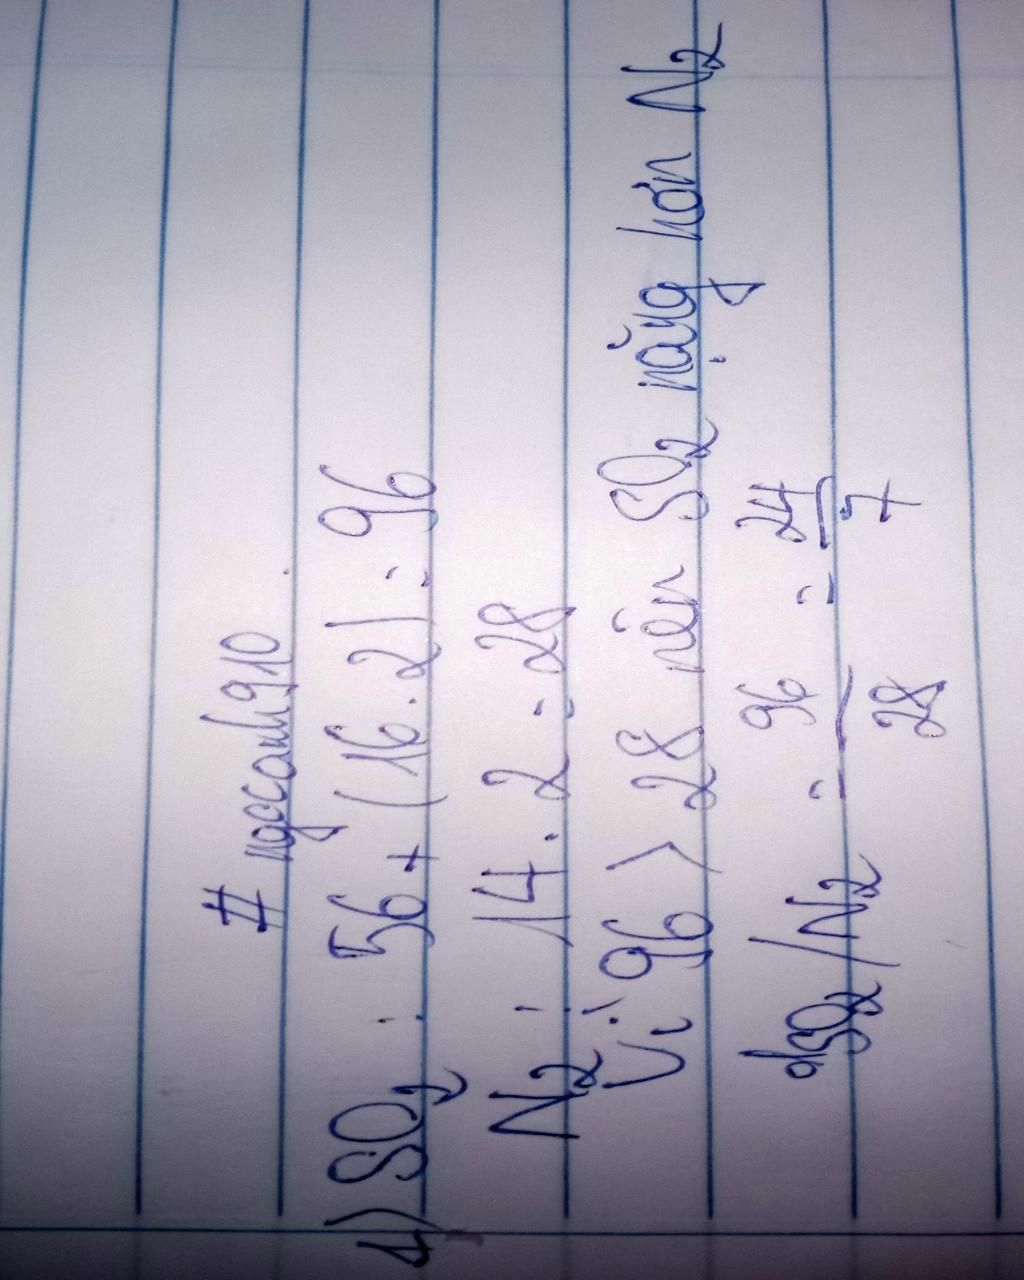 # ngocanh910
1) SO2 : 56 + (16 . 2) = 96
N2 : 14 . 2 = 28
Vì 96 > 28 nên SO2 nặng hơn N2
dSO2/N2 = 96/28 = 24/7